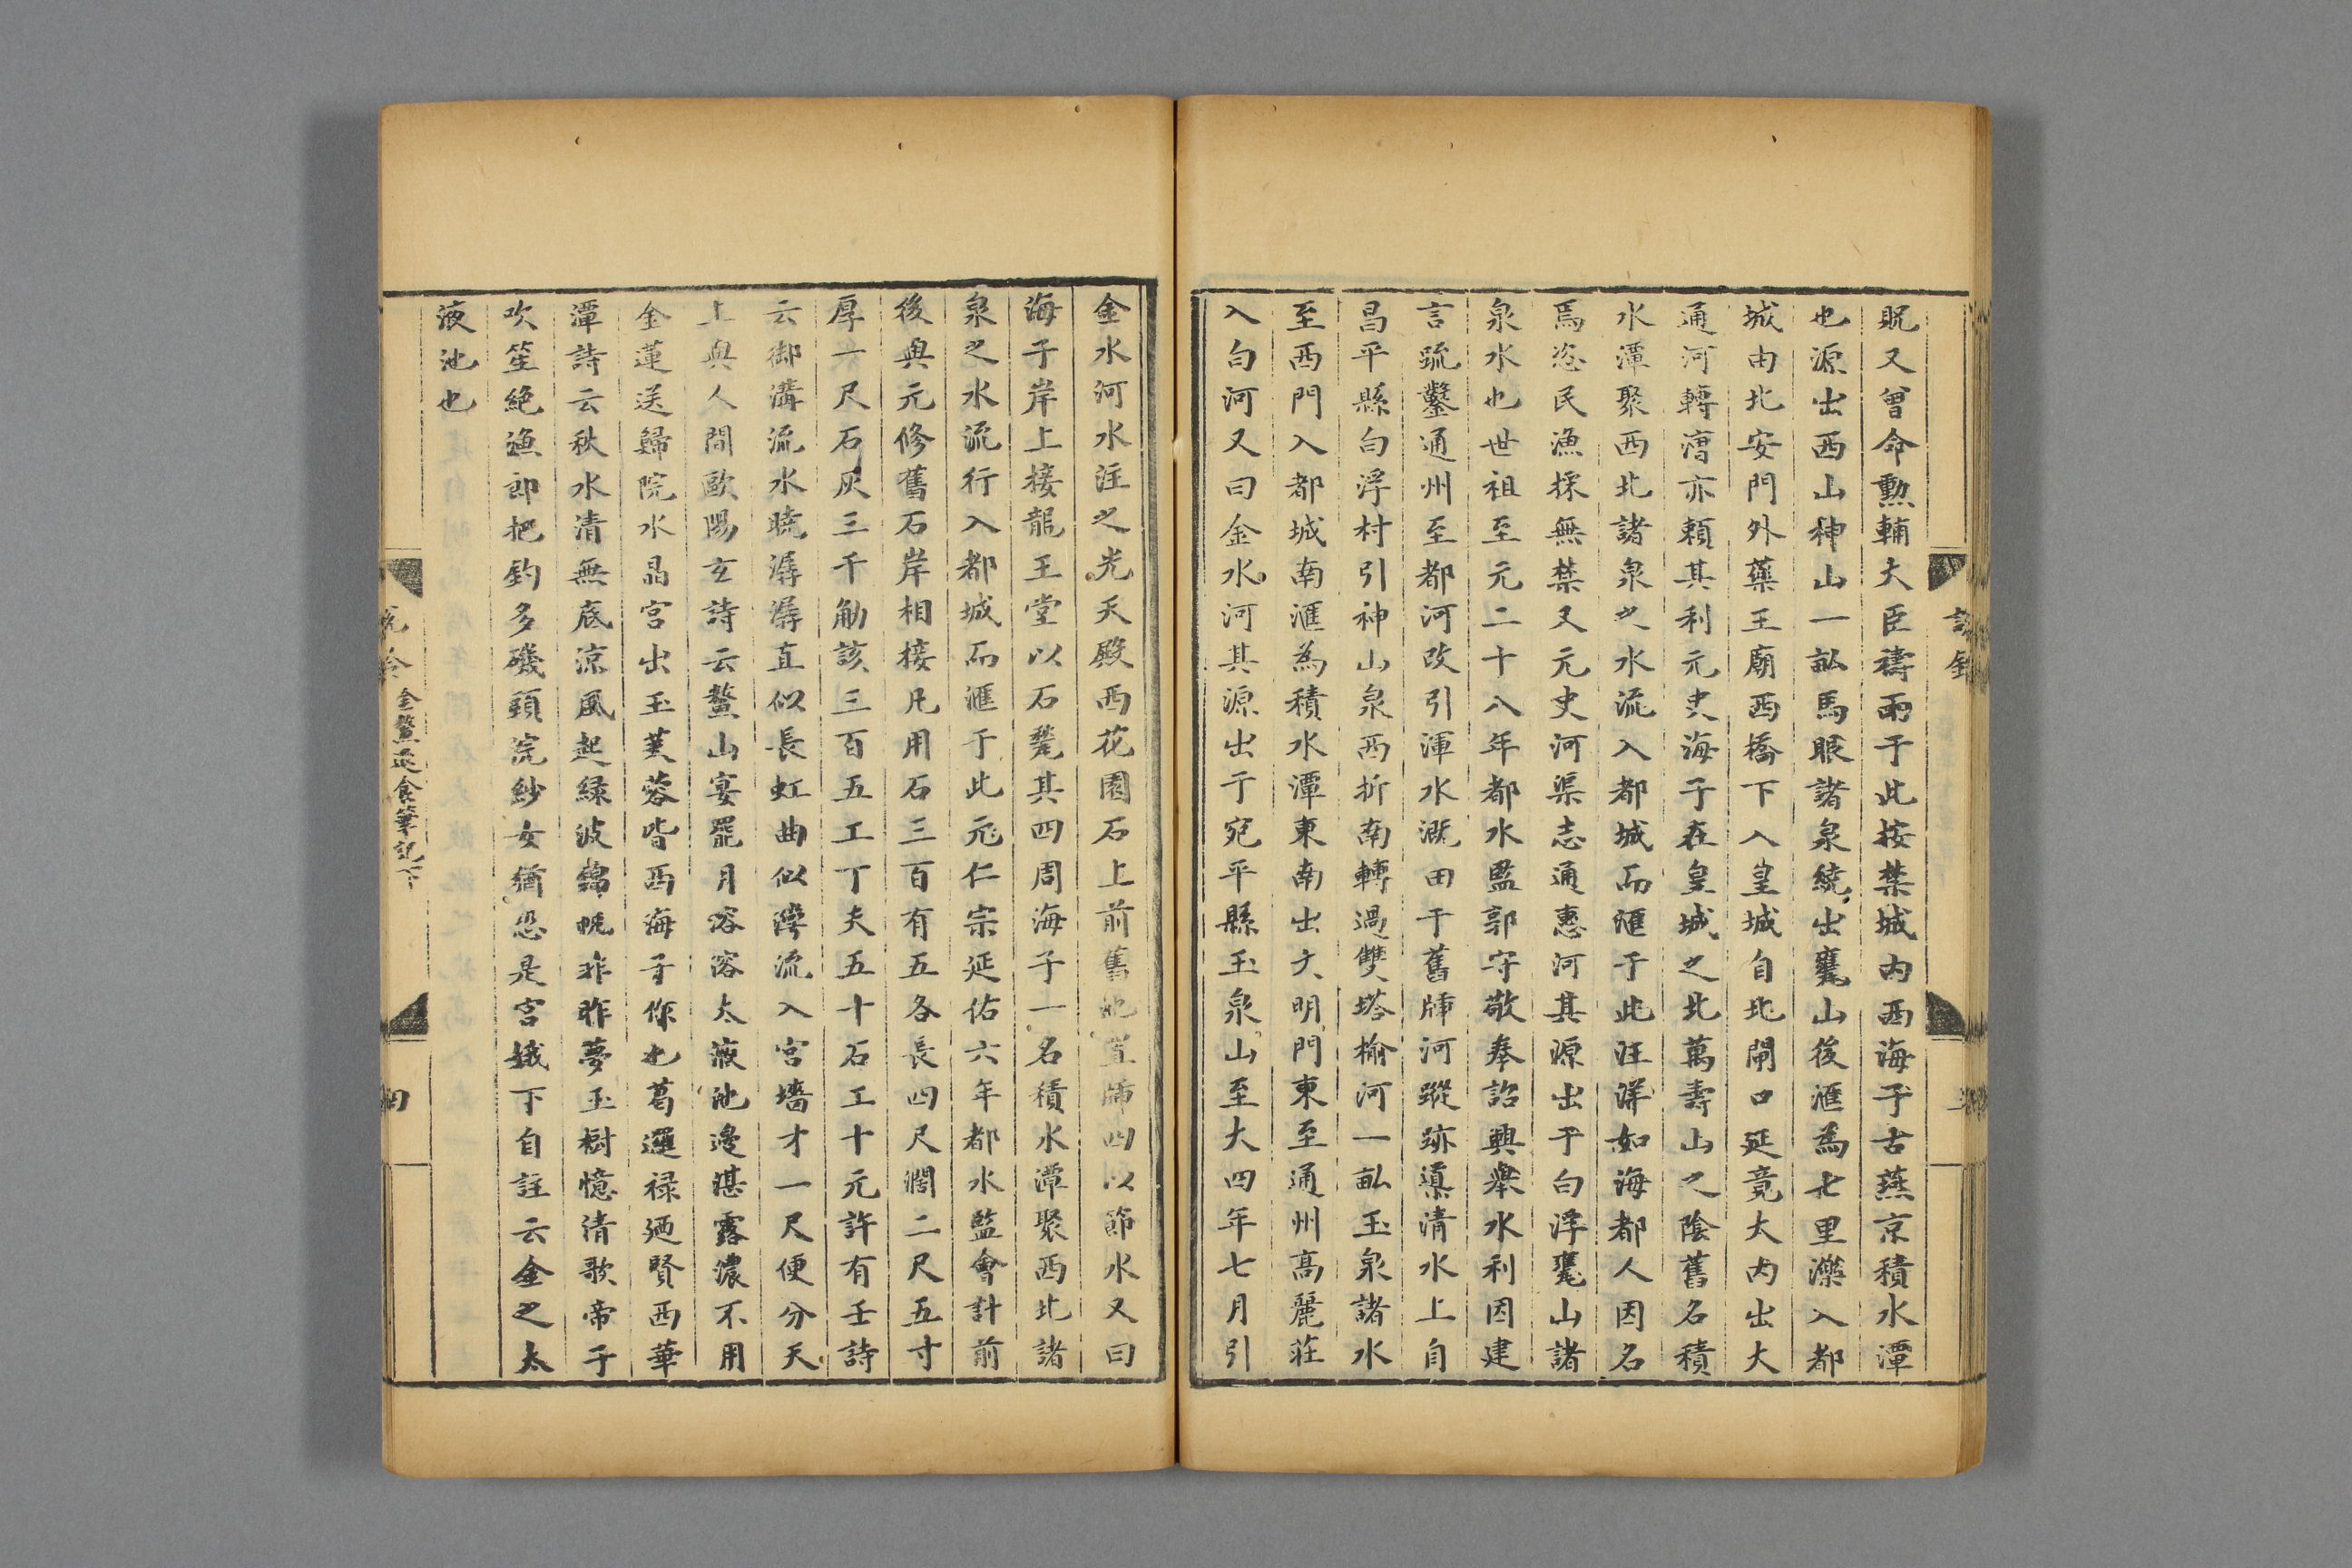 貺又曾命勲輔大臣禱雨于此按禁城内西海子古燕京積水潭
也源出西山神山一畆馬眼諸泉繞出甕山後滙為七里濼入都
城由北安門外藥王廟西橋下入皇城自北閘口延竟太内出大
通河轉漕亦頼其利元史海子在皇城之北萬壽山之陰舊名積
水潭聚西北諸泉之水流入都城而滙于此汪洋如海都人因名
焉恣民漁採無禁又元史河渠志通惠河其源出于白浮甕山諸
泉水也世祖至元二十八年都水監郭守敬奉詔興舉水利因建
言疏鑿通州至都河改引渾水溉田于舊牐河蹤跡導清水上自
昌平縣白浮村引神山泉西折南轉過雙塔榆河一畆玉泉諸水
至西門入都城南滙為積水潭東南出大明門東至通州高麗莊
入白河又曰金水河其源出于宛平縣玉泉山至大四年七月引
金水河水注之光天殿西花園石上前舊池置牐四以節水又曰
海子岸上接龍王堂以石甃其四周海子一名積水潭聚西北諸
泉之水流行入都城而滙于此元仁宗延佑六年都水監會計前
後與元修舊石岸相接凡用石三百有五各長四尺濶二尺五寸
厚一尺石灰三千觔該三百五工丁夫五十石工十元許有壬詩
云御溝流水曉潺潺直似長虹曲似灣流入宮墻才一尺便分天
上與人間歐陽玄詩云鰲山宴罷月溶溶太液池邊湛露濃不用
金蓮送歸院水晶宮出玉芙蓉皆西海子作也葛邏祿廼賢西華
潭詩云秋水清無底凉風起綠波錦帆非昨夢玉樹憶清歌帝子
吹笙絕漁郎把釣多磯頭浣紗女猶恐是宮娥下自註云金之太
液池也
金鰲退食筆記下